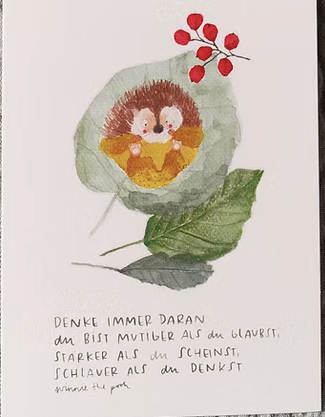 DENKE IMMER DARAN
du BIST MUTIGER ALS du GLAUBST,
STÄRKER ALS du SCHEINST,
SCHLAUER ALS du DENKST
winnie the pooh